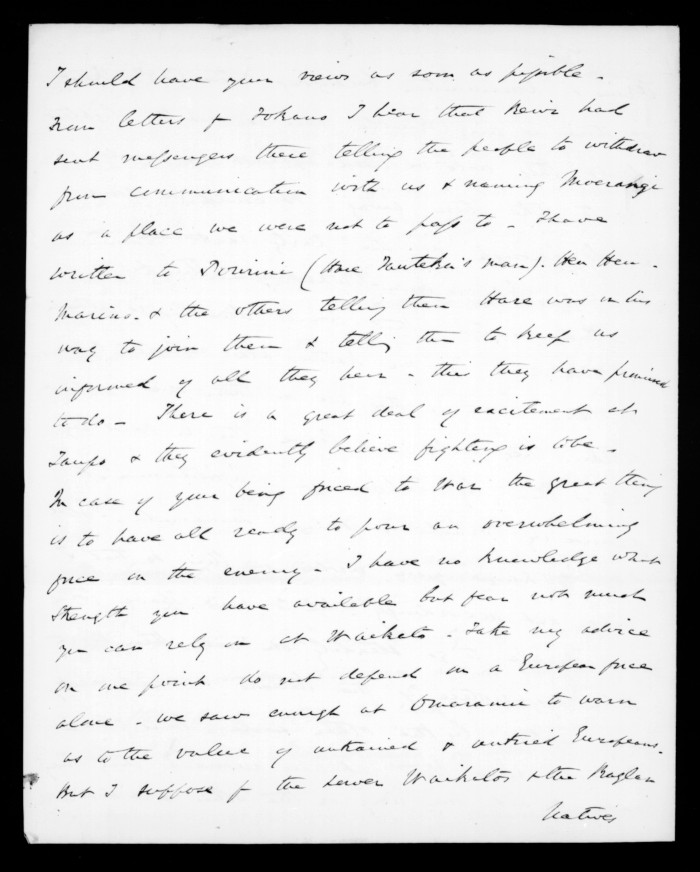 I should have your views as soon as possible -
From letters fr Tokano I hear that Rewi had
sent messengers there telling the people to withdraw
from communication with us & naming Moerangi
as a place we were not to pass to - I have
written to (Hare Tauteka's man). Heu Heu -
& the others telling them Hare was on his
way to join them & tellg them to keep us
informed of all they hear - this they have promised
to do - There is a great deal of excitement at
Taupo & they evidently believe fighting is to be -
In case of your being forced to war the great thing
is to have all ready to pour an overwhelming
force on the enemy - I have no knowledge what
strength you have available but fear not much
you can rely on at Waikato - Take my advice
on one point do not depend on a European force
alone - we saw enough at Omaranui to warn
us to the value of untrained & untried Europeans.
But I suppose fr the lower Waikatos & the Raglan
Natives